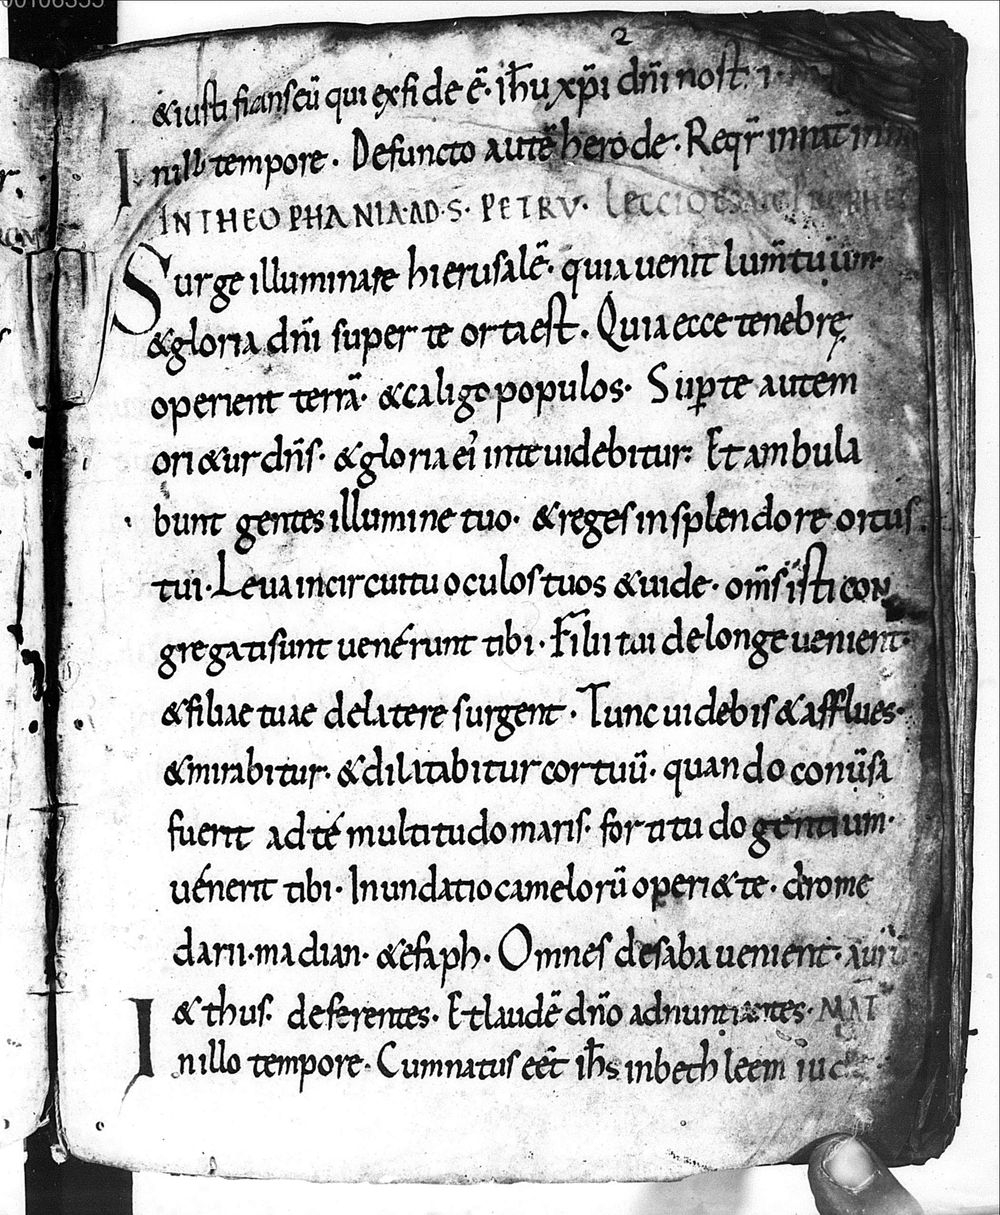 00106355
2
&iusti fianseū qui exfide ē· ih̄u xp̄i dn̄i nost̄
Inillo tempore· Defuncto autē herode· Reqr̄ inna
INTHEOPHANIA·AD·S·PETRV· Leccio
Surge illuminare hierusalē· quia uenit lum̄ tuum·
&gloria dn̄i super te orta est· Quia ecce tenebrę
operient terrā· &caligo populos· Sup̱ te autem
ori&ur dn̄s· &gloria ei' inte uidebitur· Et ambula
bunt gentes illumine tuo· &reges insplendore ortus
tui· Leua incircuitu oculos tuos &uide· om̄s isti con
gregati sunt uenérunt tibi· Filii tui delonge uenient·
&filiae tuae delatere surgent· Tunc uidebis &afflues·
&mirabitur· &dilatabitur cor tuū· quando conūsa
fuerit ad té multitudo maris· fortitudo gentium·
uénerit tibi· Inundatio camelorū operi&te· drome
darii·madian· &efaph· Omnes desaba uenient· aurū
&thus deferentes· Et laudē dn̄o adnuntiantes· MAT
Inillo tempore· Cum natus eēt ih̄s inbethleem iud